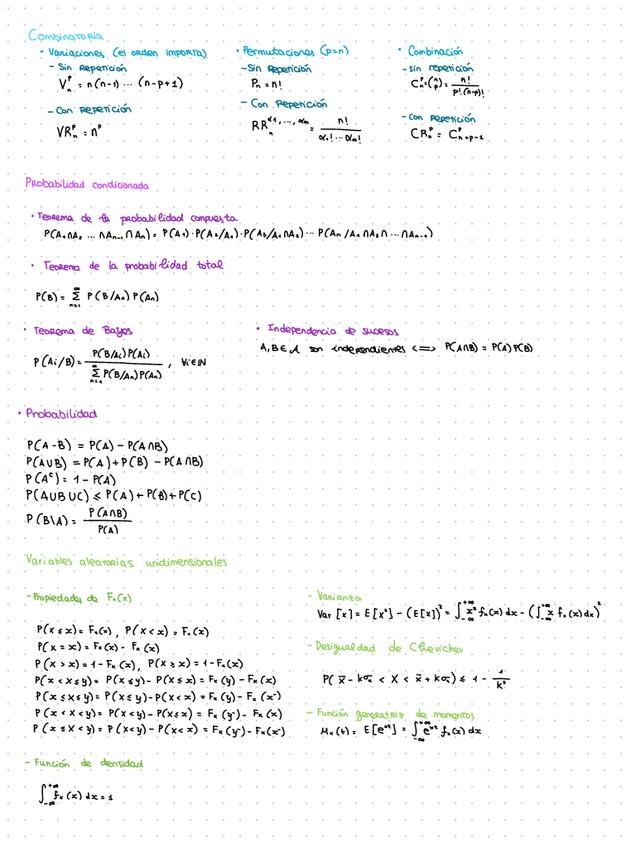 Combinatoria
• Variaciones (el orden importa)
- Sin Repetición
V_n^p = n(n-1) ... (n-p+1)
- Con Repetición
VR_n^p = n^p
• Permutaciones (p=n)
- Sin Repetición
P_n = n!
- Con Repetición
RR_n^{α1, ..., αm} = n! / (α1! ... αm!)
• Combinación
- Sin repetición
C_n^p = (n p) = n! / (p!(n-p)!)
- Con Repetición
CR_n^p = C_{n+p-1}^p
Probabilidad condicionada
• Teorema de la probabilidad compuesta
P(A1∩A2 ... ∩An-1∩An) = P(A1)·P(A2/A1)·P(A3/A1∩A2) ... P(An/A1∩A2∩ ... ∩An-1)
• Teorema de la probabilidad total
P(B) = Σ_{n=1}^∞ P(B/An) P(An)
• Teorema de Bayes
P(Ai/B) = P(B/Ai)P(Ai) / Σ_{n=1}^∞ P(B/An)P(An) , ∀i∈ℕ
• Independencia de sucesos
A, B ∈ A son independientes <=> P(A∩B) = P(A)P(B)
• Probabilidad
P(A-B) = P(A) - P(A∩B)
P(A∪B) = P(A) + P(B) - P(A∩B)
P(A^c) = 1 - P(A)
P(A∪B∪C) ≤ P(A) + P(B) + P(C)
P(B\A) = P(A∩B) / P(A)
Variables aleatorias unidimensionales
- Propiedades de Fx(x)
P(X ≤ x) = Fx(x) , P(X < x) = Fx(x^-)
P(X = x) = Fx(x) - Fx(x^-)
P(X > x) = 1 - Fx(x), P(X ≥ x) = 1 - Fx(x^-)
P(x < X ≤ y) = P(X ≤ y) - P(X ≤ x) = Fx(y) - Fx(x)
P(x ≤ X ≤ y) = P(X ≤ y) - P(X < x) = Fx(y) - Fx(x^-)
P(x < X < y) = P(X < y) - P(X ≤ x) = Fx(y^-) - Fx(x)
P(x ≤ X < y) = P(X < y) - P(X < x) = Fx(y^-) - Fx(x^-)
- Función de densidad
∫_{-∞}^{+∞} fx(x) dx = 1
- Varianza
Var [x] = E[x²] - (E[x])² = ∫_{-∞}^{+∞} x² fx(x) dx - (∫_{-∞}^{+∞} x fx(x) dx)²
- Desigualdad de Chevichev
P(x̄ - kσx < X < x̄ + kσx) ≤ 1 - 1/k²
- Función generatriz de momentos
Mx(t) = E[e^{xt}] = ∫_{-∞}^{+∞} e^{xt} fx(x) dx